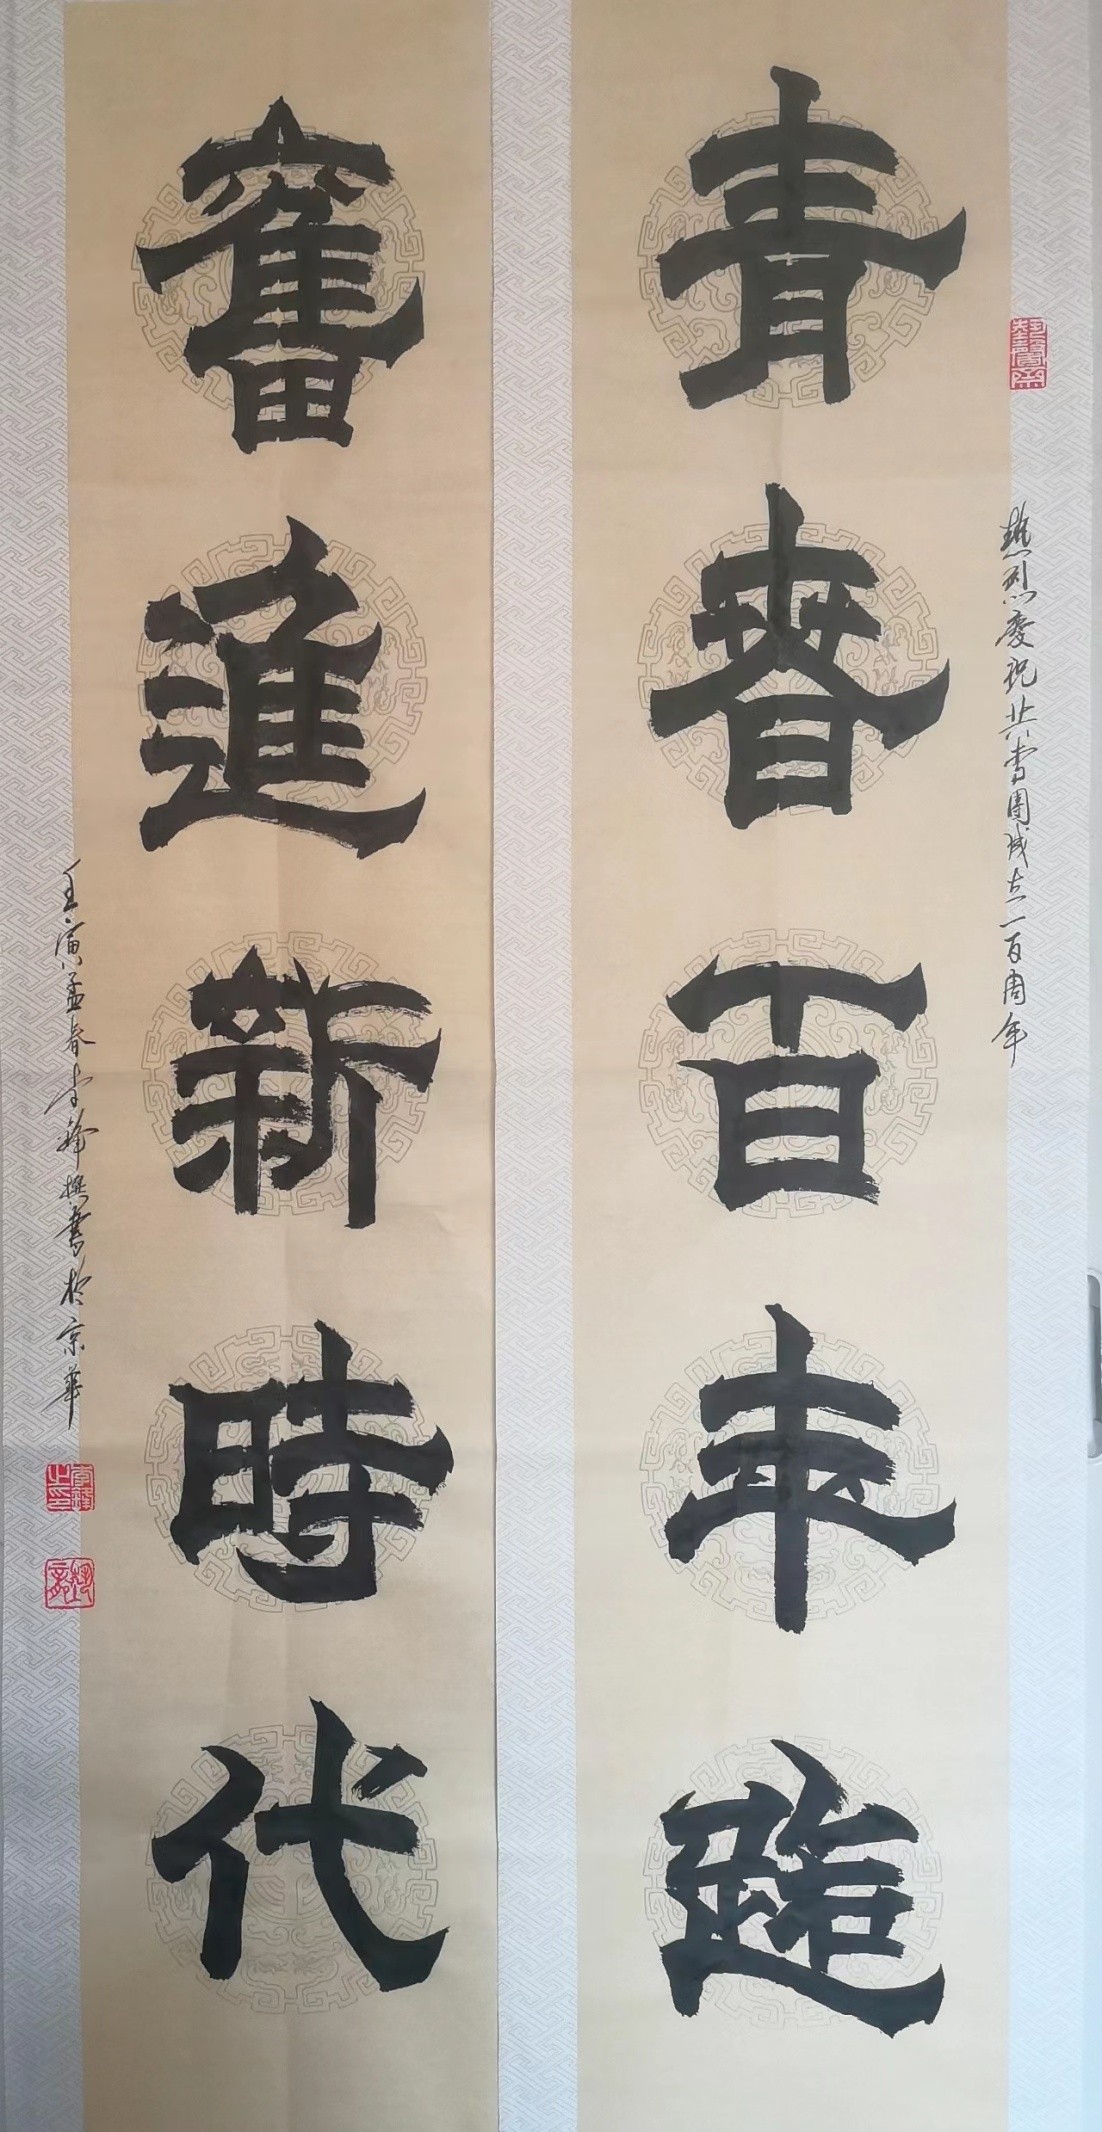 熱烈慶祝共青團成立一百周年
青春百年路
奮進新時代
壬寅孟春李鋒撰書於京華